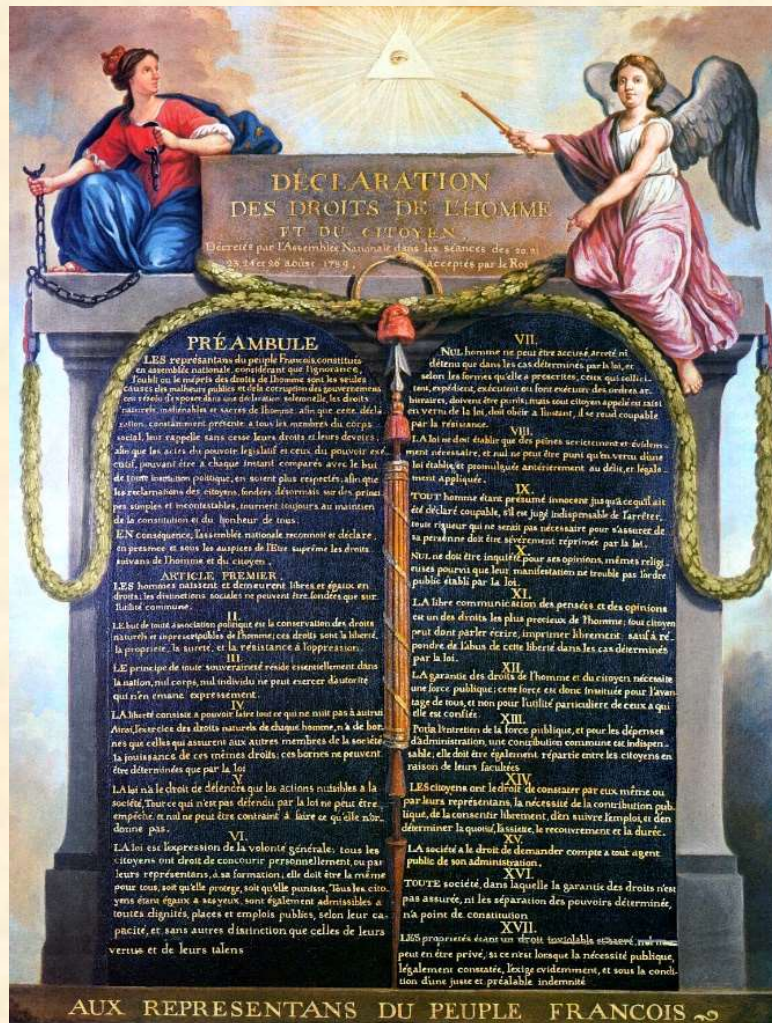 DÉCLARATION
DES DROITS DE L'HOMME
ET DU CITOYEN,
Décretés par l'Assemblée Nationale dans les séances des 20, 21
23, 24 et 26 août 1789, acceptés par le Roi
PRÉAMBULE
LES représantans du peuple Francois, constitués
en assemblée nationale, considérant que l'ignorance,
l'oubli ou le mépris des droits de l'homme sont les seules
causes des malheurs publics et de la corruption des gouvernemens
ont résolu d'exposer dans une déclaration solemnelle, les droits
naturels, inaliénables et sacrés de l'homme; afin que cette décla
ration, constamment présente a tous les membres du corps
social, leur rappelle sans cesse leurs droits et leurs devoirs;
afin que les actes du pouvoir législatif et ceux du pouvoir exé
cutif, pouvant être a chaque instant comparés avec le but
de toute institution politique, en soient plus respectés; afin que
les reclamations des citoyens, fondées désormais sur des princi
pes simples et incontestables, tournent toujours au maintien
de la constitution et du bonheur de tous.
EN conséquence, l'assemblée nationale reconnoit et déclare,
en presence et sous les auspices de l'Etre suprême les droits
suivans de l'homme et du citoyen.
ARTICLE PREMIER.
LES hommes naissent et demeurent libres et égaux en
droits; les distinctions sociales ne peuvent être fondées que sur
l'utilité commune.
II.
LE but de toute association politique est la conservation des droits
naturels et inprescriptibles de l'homme; ces droits sont la liberté,
la propriété, la sureté, et la résistance à l'oppression.
III.
LE principe de toute souveraineté réside essentiellement dans
la nation, nul corps, nul individu ne peut exercer d'autorité
qui n'en emane expressement.
IV.
LA liberté consiste a pouvoir faire tout ce qui ne nuit pas à autrui
Ainsi, l'exercice des droits naturels de chaque homme, n'a de bor
nes que celles qui assurent aux autres membres de la société
la jouissance de ces mêmes droits; ces bornes ne peuvent
être déterminées que par la loi
V.
LA loi n'a le droit de défendre que les actions nuisibles a la
société. Tout ce qui n'est pas défendu par la loi ne peut être
empêché, et nul ne peut être contraint à faire ce qu'elle n'or-
donne pas.
VI.
LA loi est l'expression de la volonté générale; tous les
citoyens ont droit de concourir personnellement, ou par
leurs représentans, à sa formation; elle doit être la même
pour tous, soit qu'elle protege, soit qu'elle punisse, Tous les cito
yens étant égaux a ses yeux, sont également admissibles a
toutes dignités, places et emplois publics, selon leur ca-
pacité, et sans autres distinction que celles de leurs
vertus et de leurs talens
VII.
NUL homme ne peut être accusé, arreté, ni
détenu que dans les cas déterminés par la loi, et
selon les formes qu'elle a prescrites, ceux qui sollici-
tent, expédient, exécutent ou font exécuter des ordres ar-
bitraires, doivent être punis; mais tout citoyen appelé ou saisi
en vertu de la loi, doit obéir a l'instant, il se rend coupable
par la résistance.
VIII.
LA loi ne doit établir que des peines strictement et évidem-
ment nécessaire, et nul ne peut être puni qu'en vertu d'une
loi établie et promulguée antérierement au délit, et légale
ment appliquée.
IX.
TOUT homme étant présumé innocent jusqu'a ce qu'il ait
été déclaré coupable, s'il est jugé indispensable de l'arrêter,
toute rigueur qui ne serait pas nécessaire pour s'assurer de
sa personne doit être sévèrement réprimée par la loi.
X.
NUL ne doit être inquiété pour ses opinions, mêmes religi-
euses pourvu que leur manifestation ne trouble pas l'ordre
public établi par la loi.
XI.
LA libre communication des pensées et des opinions
est un des droits les plus precieux de l'homme; tout citoyen
peut dont parler écrire, imprimer librement: sauf à ré-
pondre de l'abus de cette liberté dans les cas déterminés
par la loi.
XII.
LA garantie des droits de l'homme et du citoyen nécessite
une force publique; cette force est donc instituée pour l'avan-
tage de tous, et non pour l'utilité particuliere de ceux a qui
elle est confiée.
XIII.
Pour l'entretien de la force publique, et pour les dépenses
d'administration, une contribution commune est indispen-
sable; elle doit être également répartie entre les citoyens en
raison de leurs facultées
XIV.
LES citoyens ont le droit de constater par eux même ou
par leurs représentans, la nécessité de la contribution pub-
lique, de la consentir librement, d'en suivre l'emploi, et d'en
déterminer la quotité, l'assiette, le recouvrement et la durée.
XV.
LA société a le droit de demander compte a tout agent
public de son administration.
XVI.
TOUTE société, dans laquelle la garantie des droits n'est
pas assurée, ni les séparation des pouvoirs déterminée,
n'a point de constitution
XVII.
LES proprietés étant un droit inviolable et sacré, nul ne
peut en être privé, si ce n'est lorsque la nécessité publique,
légalement constatée, l'exige evidemment, et sous la condi-
tion d'une juste et préalable indemnité
AUX REPRESENTANS DU PEUPLE FRANCOIS